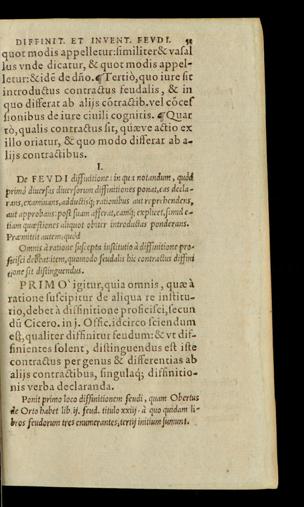 DIFFINIT. ET INVENT. FEVDI.
quot modis appelletur: similiter & vasal
lus vnde dicatur, & quot modis appel-
letur: & idē de dño. ¶Tertiò, quo iure sit
introductus contractus feudalis, & in
quo differat ab alijs cōtractib. vel cōces
sionibus de iure ciuili cognitis. ¶Quar
tò, qualis contractus sit, quæve actio ex
illo oriatur, & quo modo differat ab a-
lijs contractibus.
I.
De FEVDI diffinitione: in qua notandum, quòd
primò diuersas diuersorum diffinitiones ponat, eas decla-
rans, examinans, adductisq; rationibus aut reprehendens,
aut approbans: post suam afferat, eamq; explicet, simul e-
tiam quæstiones aliquot obiter introductas ponderans.
Præmittit autem: quòd
Omnis à ratione suscepta institutio à diffinitione pro-
ficisci debeat: item, quomodo feudalis hic contractus diffini
tione sit distinguendus.
PRIMO igitur, quia omnis, quæ à
ratione suscipitur de aliqua re institu-
tio, debet à diffinitione proficisci, secun
dū Cicero. in j. Offic. idcirco sciendum
est, qualiter diffinitur feudum: & vt dif-
finientes solent, distinguendus est iste
contractus per genus & differentias ab
alijs contractibus, singulaq; diffinitio-
nis verba declaranda.
Ponit primo loco diffinitionem feudi, quam Obertus
de Orto habet lib. ij. feud. titulo xxiij. à quo quidam li-
bros feudorum tres enumerantes, tertij initium sumunt.